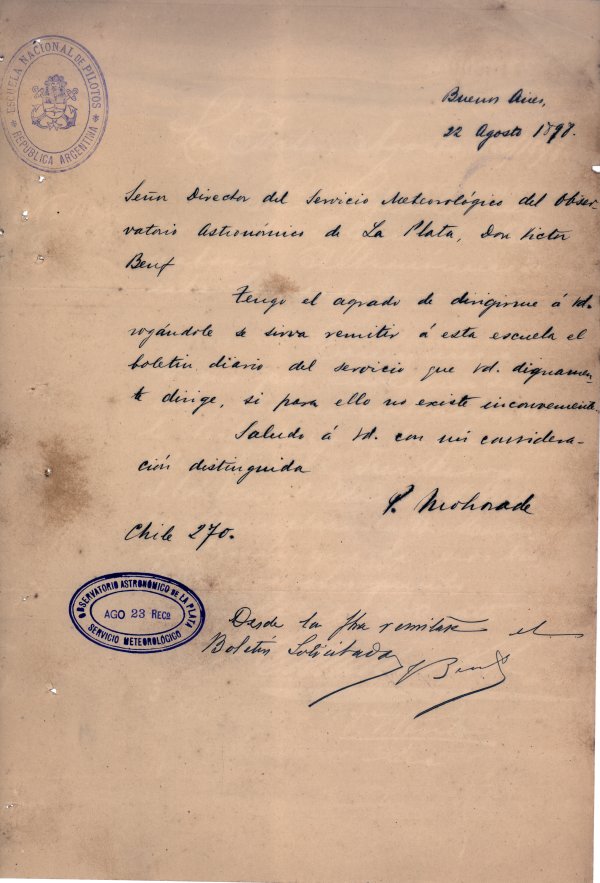 ESCUELA NACIONAL DE PILOTOS
* REPÚBLICA ARGENTINA *
Buenos Aires,
22 Agosto 1898.
Señor Director del Servicio Meteorológico del Obser-
vatorio Astronómico de La Plata, Don Victor
Beuf
Tengo el agrado de dirigirme á Vd.
rogándole se sirva remitir á esta escuela el
boletin diario del servicio que Vd. dignamen-
te dirige, si para ello no existe inconveniente.
Saludo á Vd. con mi considera-
ción distinguida
Chile 270.
OBSERVATORIO ASTRONÓMICO DE LA PLATA
AGO 23 RECO
SERVICIO METEOROLÓGICO
Desde la fha remitase el
Boletin Solicitado
V Beuf